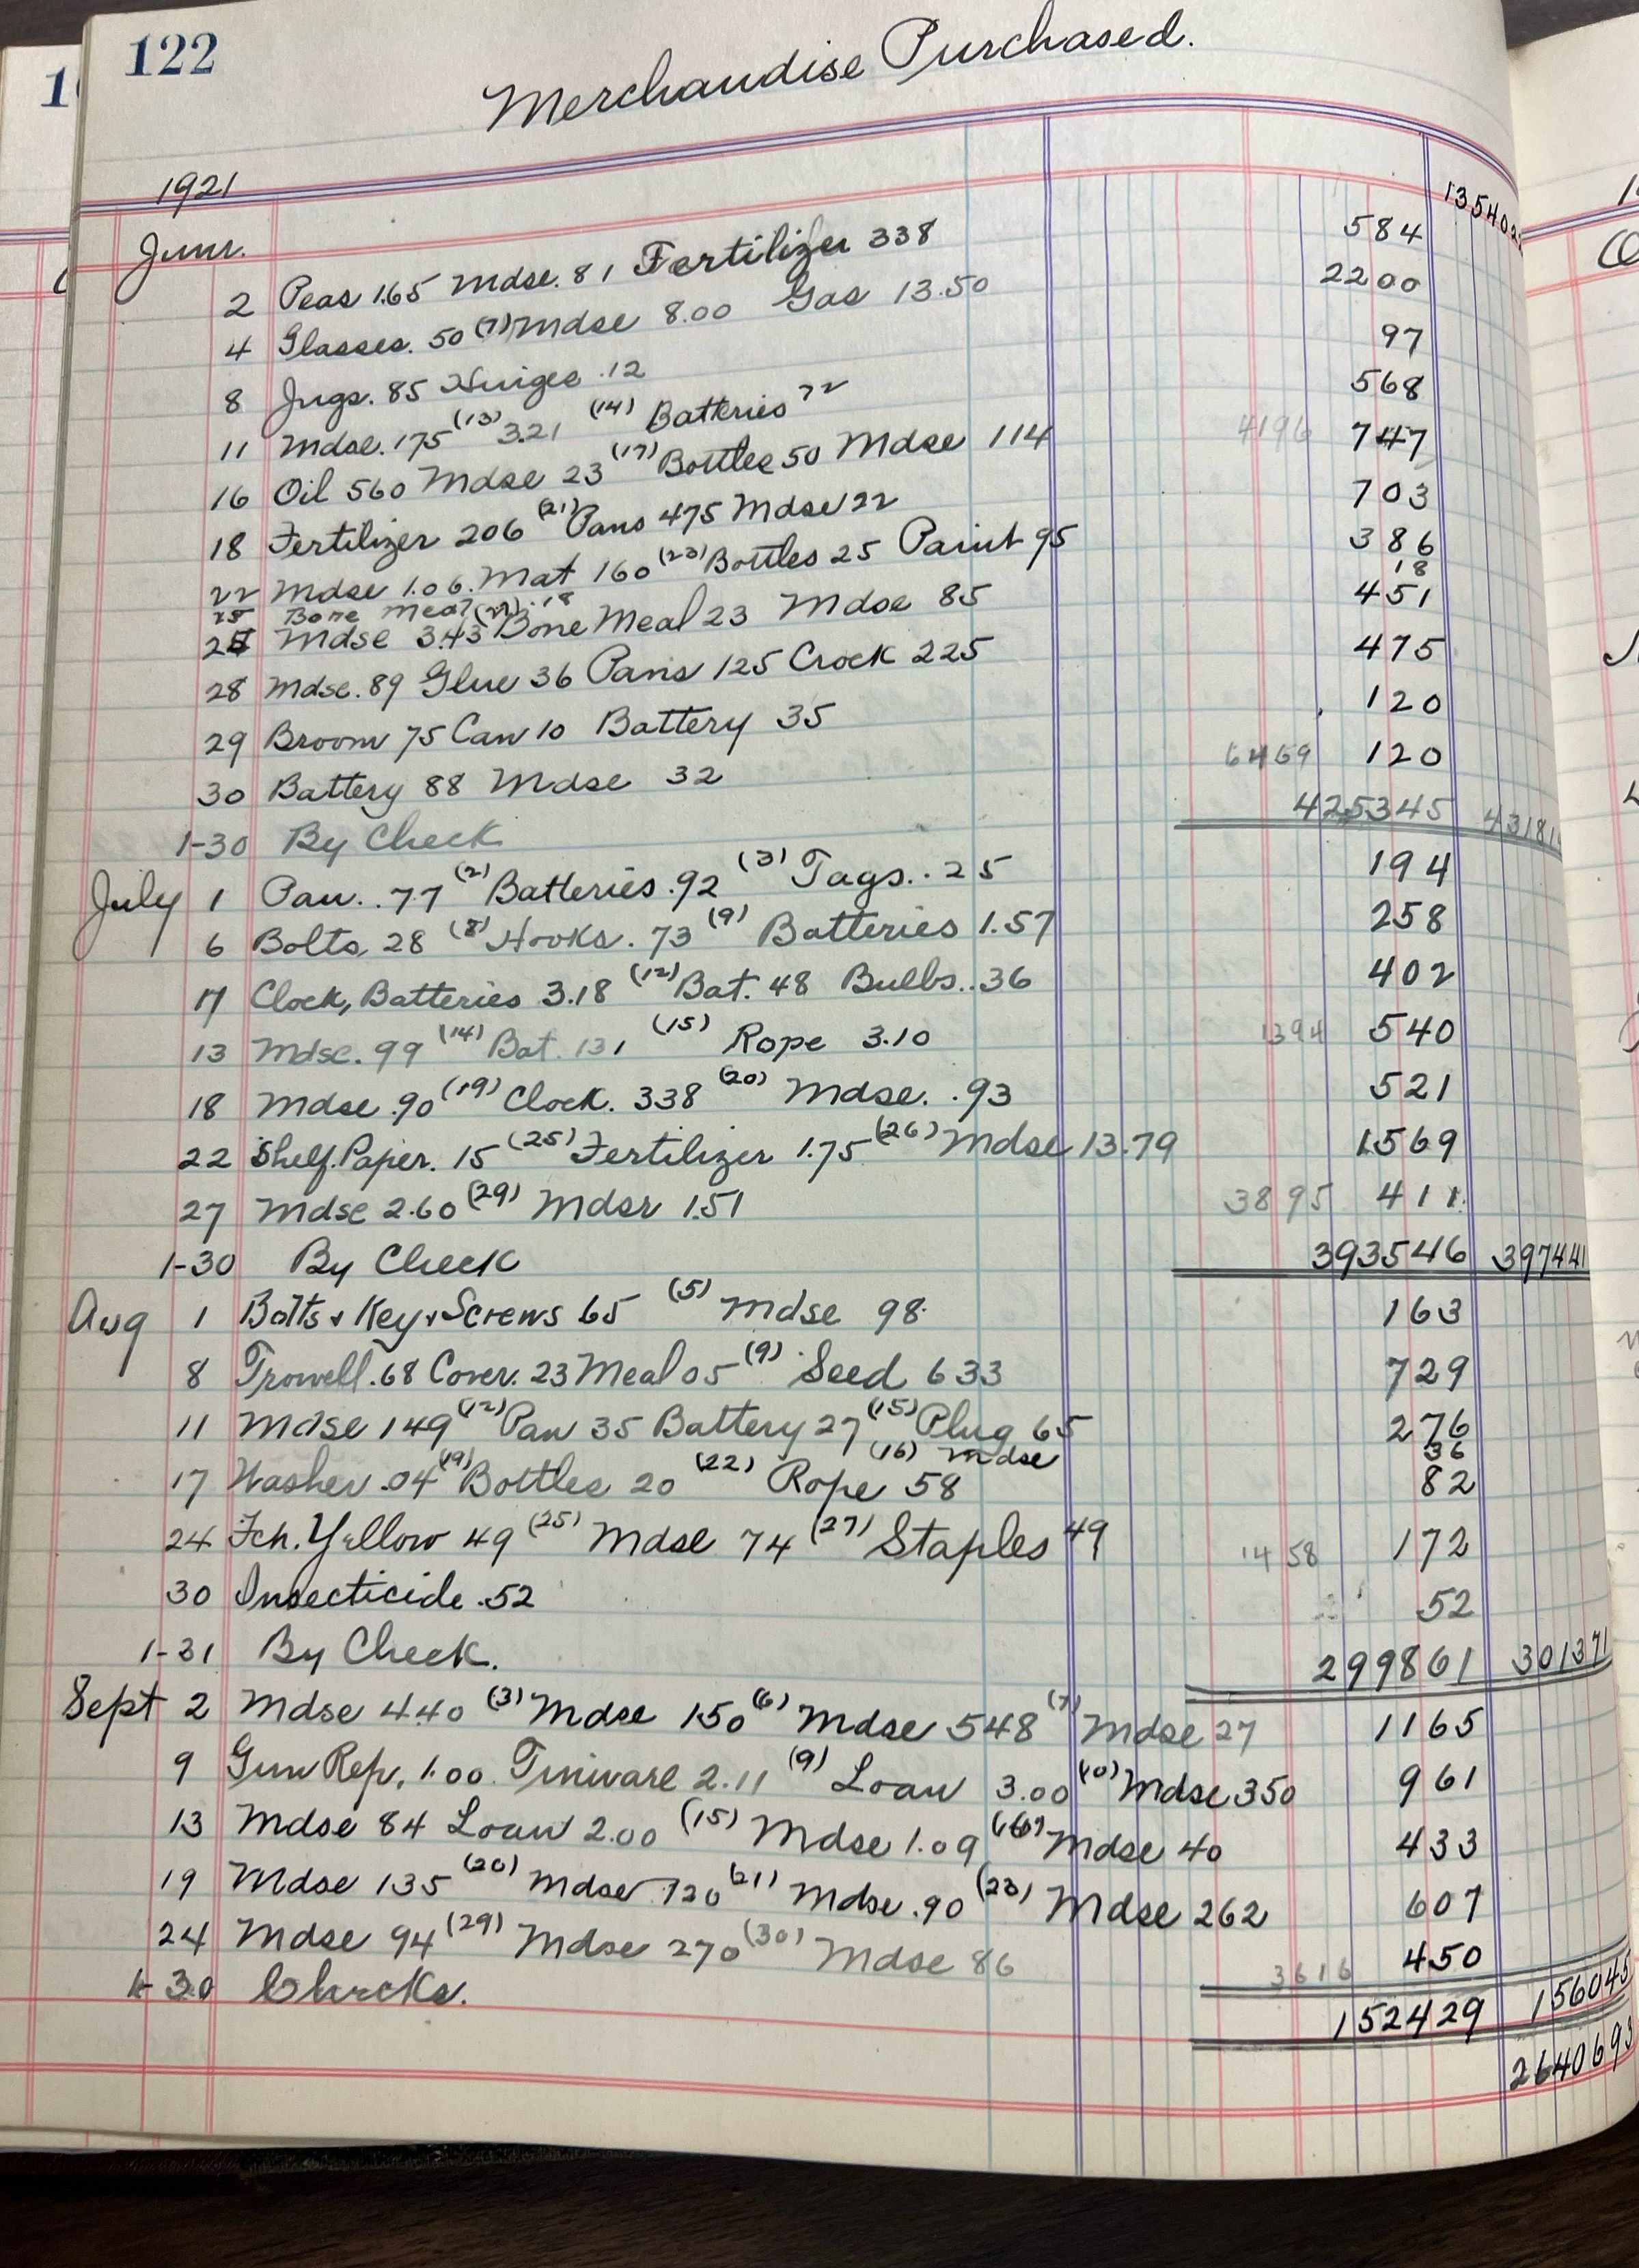 122
Merchandise Purchased.
1921
June.
2 Peas 1.65 Mdse. 81 Fertilizer 338 584
4 Glasses. 50 (7) Mdse 8.00 Gas 13.50 2200
8 Jugs. 85 Hinges .12 97
11 Mdse. 175 (13) 3.21 (14) Batteries 72 568
16 Oil 560 Mdse 23 (17) Bottles 50 Mdse 114 4196 747
18 Fertilizer 206 (21) Pans 475 Mdse 22 703
22 Mdse 1.06. Mat 160 (23) Bottles 25 Paint 95 386
25 Bone Meal .18 18
25 Mdse 3.43 (27) Bone Meal 23 Mdse 85 451
28 Mdse. 89 Glue 36 Pans 125 Crock 225 475
29 Broom 75 Can 10 Battery 35 120
30 Battery 88 Mdse 32 6469 120
1-30 By Check 425345
July 1 Pan. .77 (2) Batteries .92 (3) Tags. .25 194
6 Bolts, 28 (8) Hooks. 73 (9) Batteries 1.57 258
11 Clock, Batteries 3.18 (12) Bat. 48 Bulbs. .36 402
13 Mdse. 99 (14) Bat. 131 (15) Rope 3.10 1394 540
18 Mdse .90 (19) Clock. 338 (20) Mdse. .93 521
22 Shelf Paper. 15 (25) Fertilizer 1.75 (26) Mdse 13.79 1569
27 Mdse 2.60 (29) Mdse 1.51 3895 411
1-30 By Check 393546 397441
Aug 1 Bolts + Key + Screws 65 (5) Mdse 98 163
8 Trowell .68 Cover. 23 Meal 05 (9) Seed 633 729
11 Mdse 149 (12) Pan 35 Battery 27 (15) Plug 65 276
(16) Mdse 36
17 Washer .04 (19) Bottles 20 (22) Rope 58 82
24 Fch. Yellow 49 (25) Mdse 74 (27) Staples 49 1458 172
30 Insecticide .52 52
1-31 By Check. 299861 301371
Sept 2 Mdse 440 (3) Mdse 150 (6) Mdse 548 (7) Mdse 27 1165
9 Gun Rep, 1.00. Tinware 2.11 (9) Loan 3.00 (10) Mdse 350 961
13 Mdse 84 Loan 2.00 (15) Mdse 1.09 (16) Mdse 40 433
19 Mdse 135 (20) Mdse 120 (21) Mdse .90 (23) Mdse 262 607
24 Mdse 94 (29) Mdse 270 (30) Mdse 86 3616 450
1-30 Checks. 152429 156045
2640693